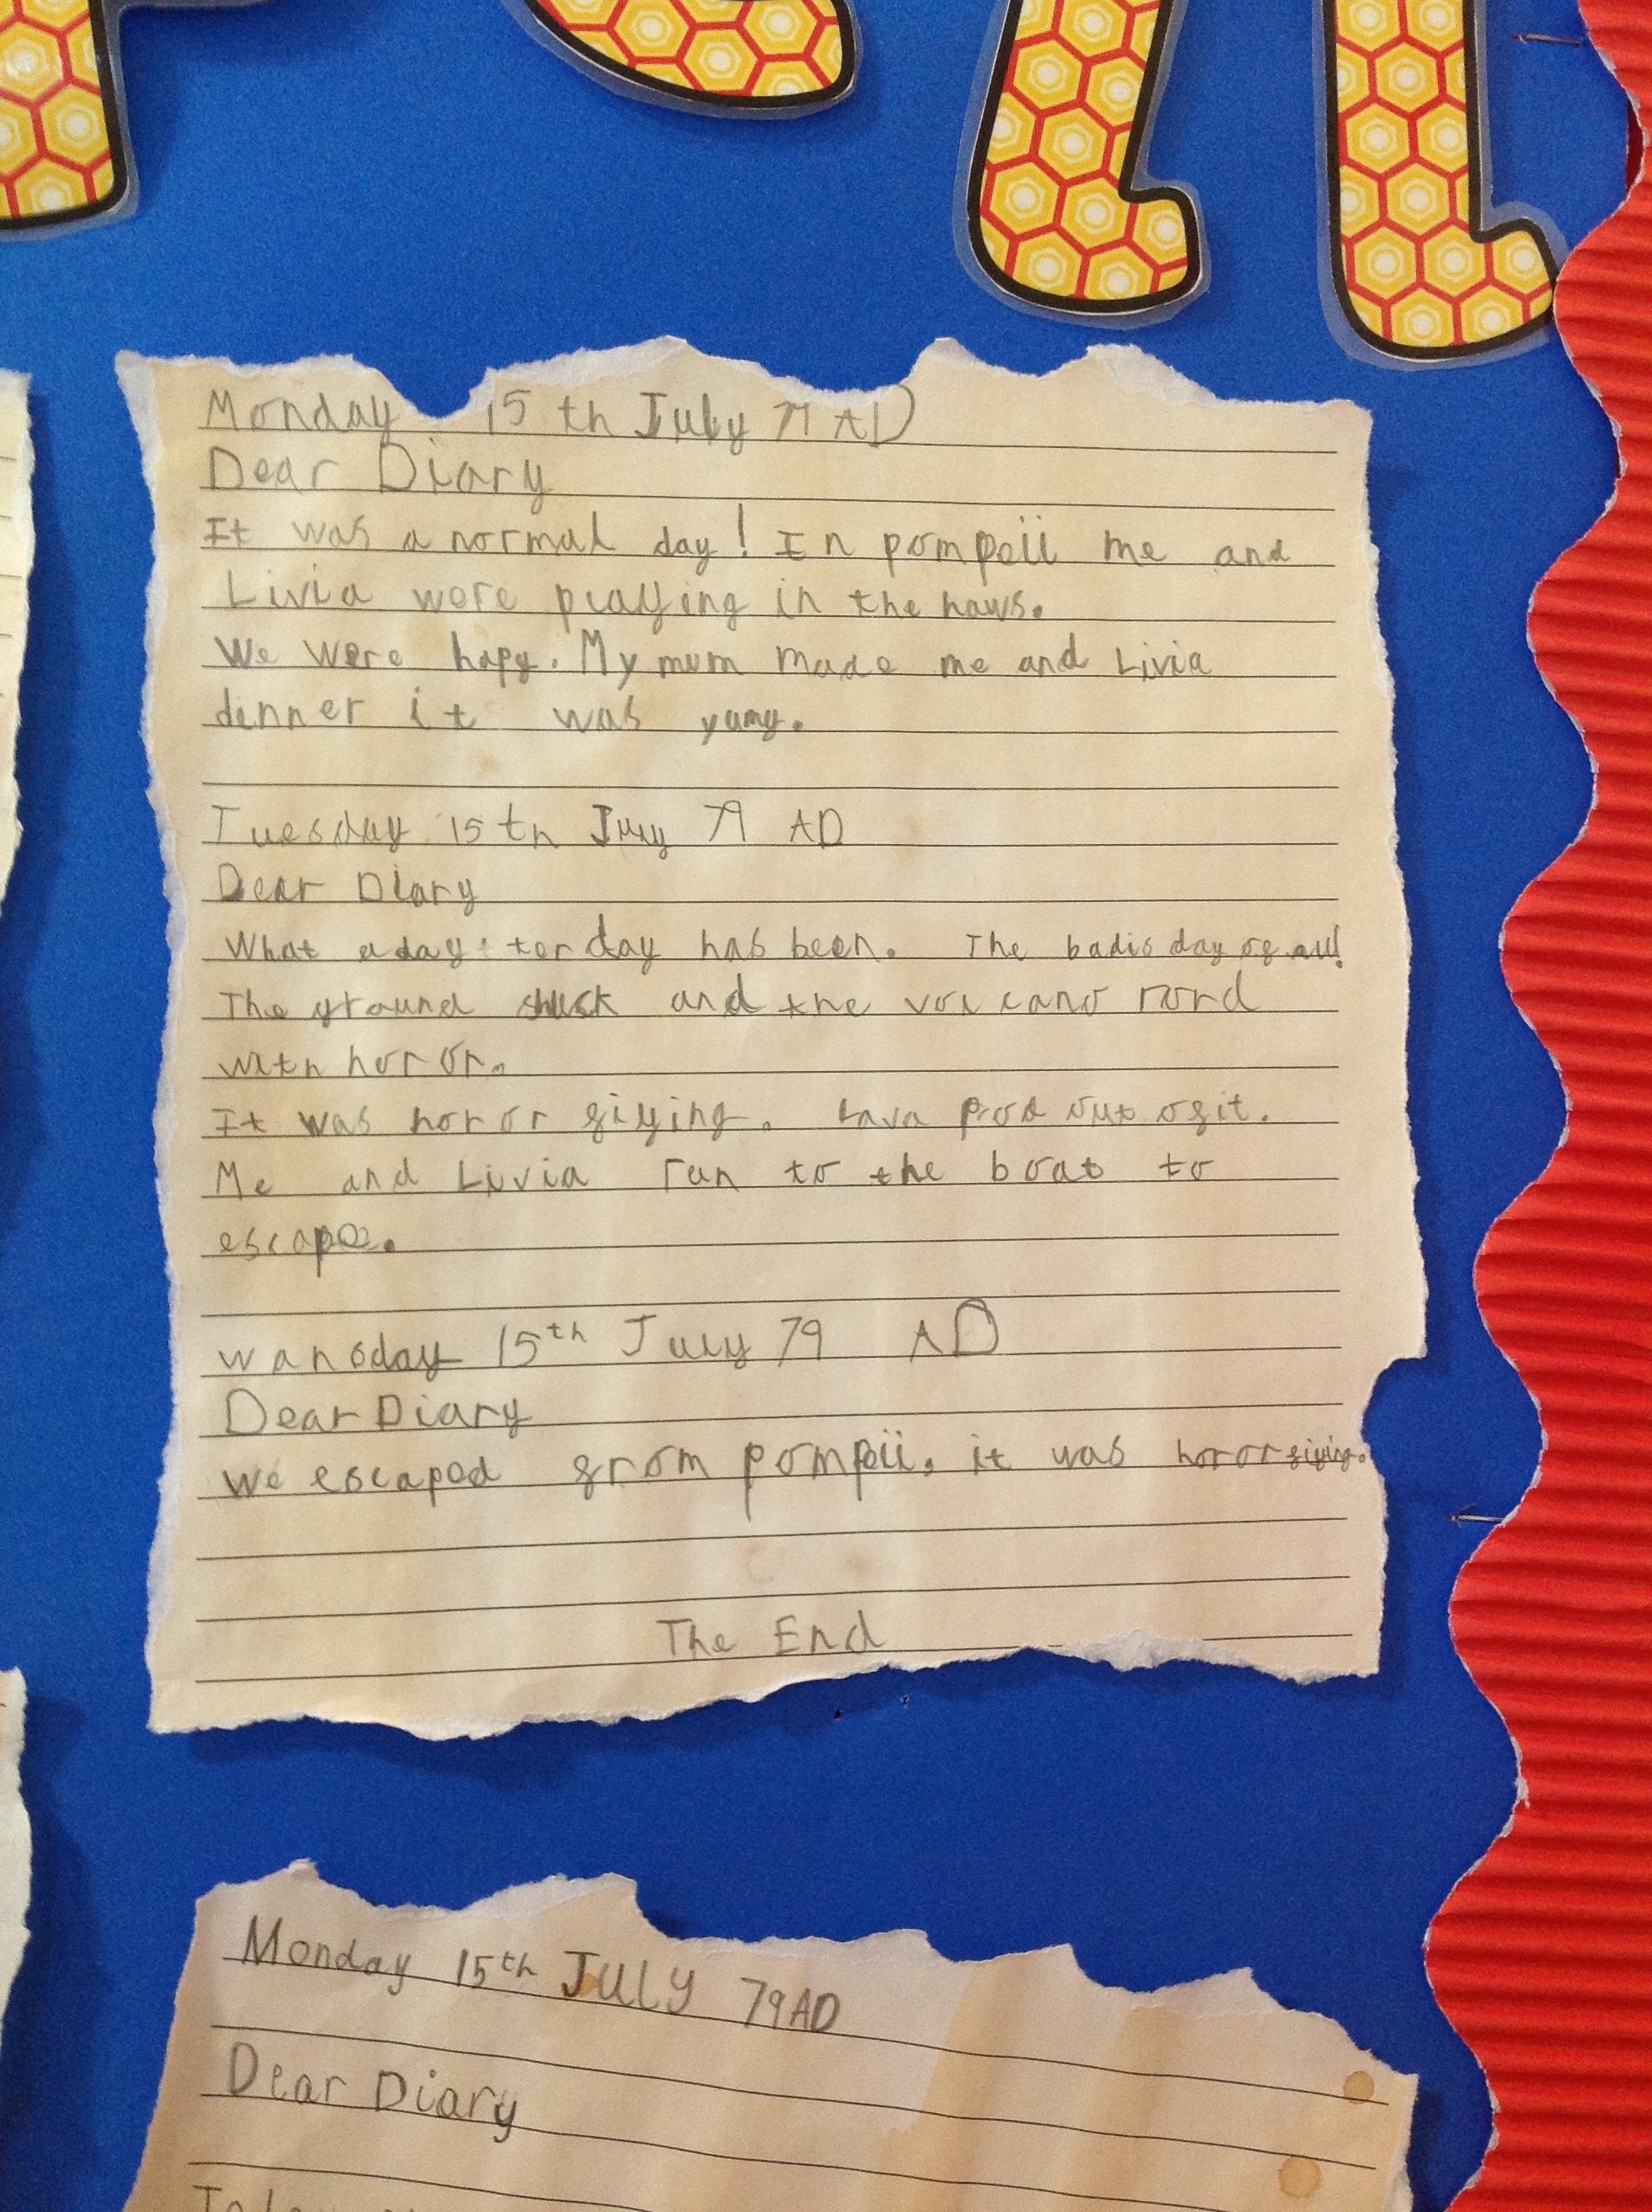 Monday 15th July 79 AD
Dear Diary
It was a normal day! In pompeii me and
Livia were playing in the haws.
We were hapy. My mum made me and Livia
dinner it was yumy.
Tuesday 15th July 79 AD
Dear Diary
What a day ter day has been. The badis day of all!
The ground shuck and the volcano rord
with horor.
It was horor fifying. Lava prod out of it.
Me and Livia run to the boat to
escape.
wansday 15th July 79 AD
Dear Diary
we escaped from pompeii. it was hororfifying.
The End
Monday 15th JULY 79AD
Dear Diary